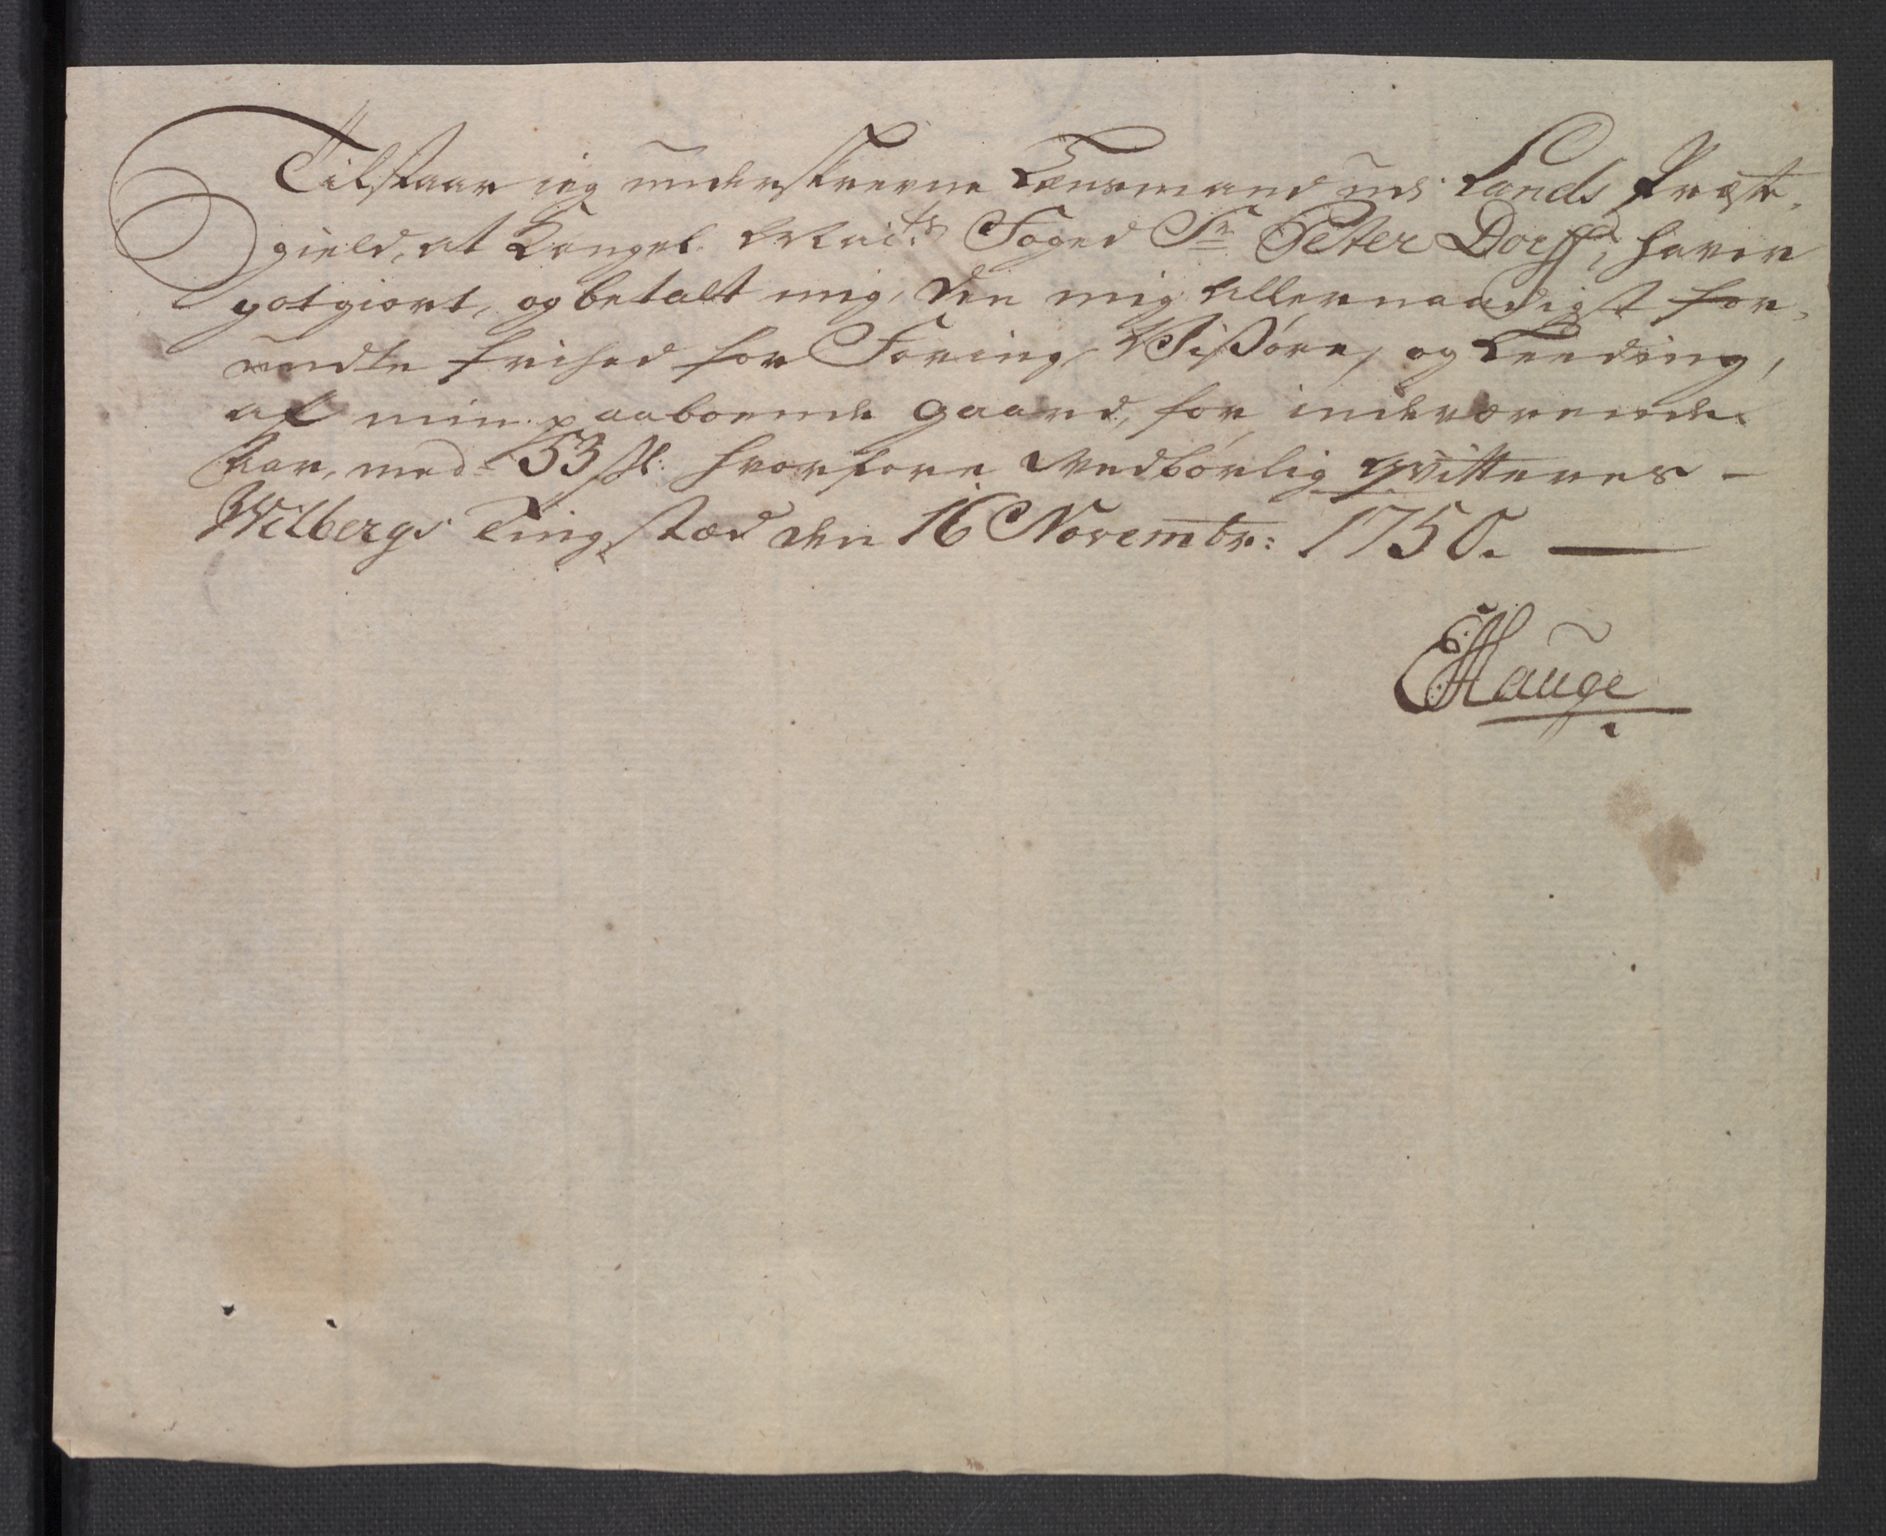 Tilstaar ieg underskrevne Lensmand udi Lands Præste-
gield, at Kongel. Mai:ts Foged Sr Peter Dorff, haver
gotgiort, og betalt mig, den mig allernaadigst for-
undte frihed for Foring, Visøre, og Leeding,
af min paaboende gaard, for indeværende
Aar, med 53 sk: hvorfore vedbørlig qvitteres –
Wilbergs Tingstæd den 16 Novembr: 1750. —
EHauge